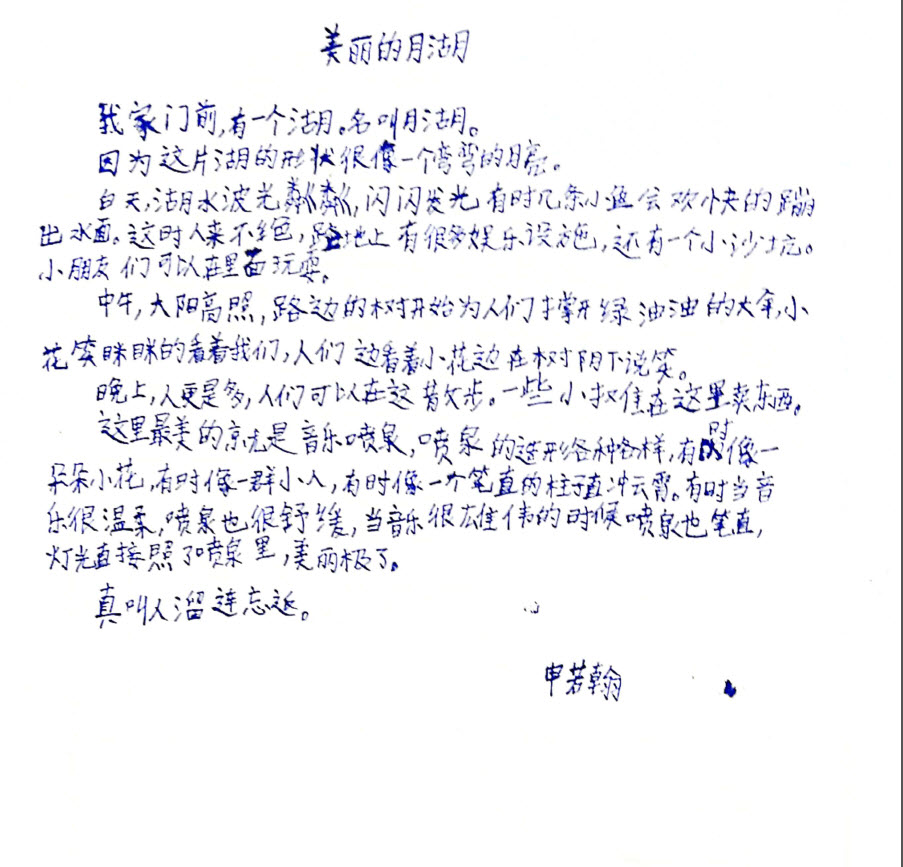 美丽的月湖
我家门前,有一个湖。名叫月湖。
因为这片湖的形状很像一个弯弯的月亮。
白天,湖水波光粼粼,闪闪发光有时几条小鱼会欢快的蹦
出水面。这时人来不绝,路地上有很多娱乐设施,还有一个小沙坑。
小朋友们可以在里面玩耍。
中午,大阳高照,路边的树开始为人们撑开绿油油的大伞,小
花笑眯眯的看着我们,人们边看着小花边在树阴下说笑。
晚上,人更是多,人们可以在这散步。一些小摊在这里卖东西。
这里最美的景就是音乐喷泉,喷泉的造形各种各样,有时像一
朵朵小花,有时像一群小人,有时像一个笔直的柱子直冲云霄。有时当音
乐很温柔,喷泉也很舒缓,当音乐很雄伟的时候喷泉也笔直,
灯光直接照了喷泉里,美丽极了。
真叫人溜连忘返。
申若翰